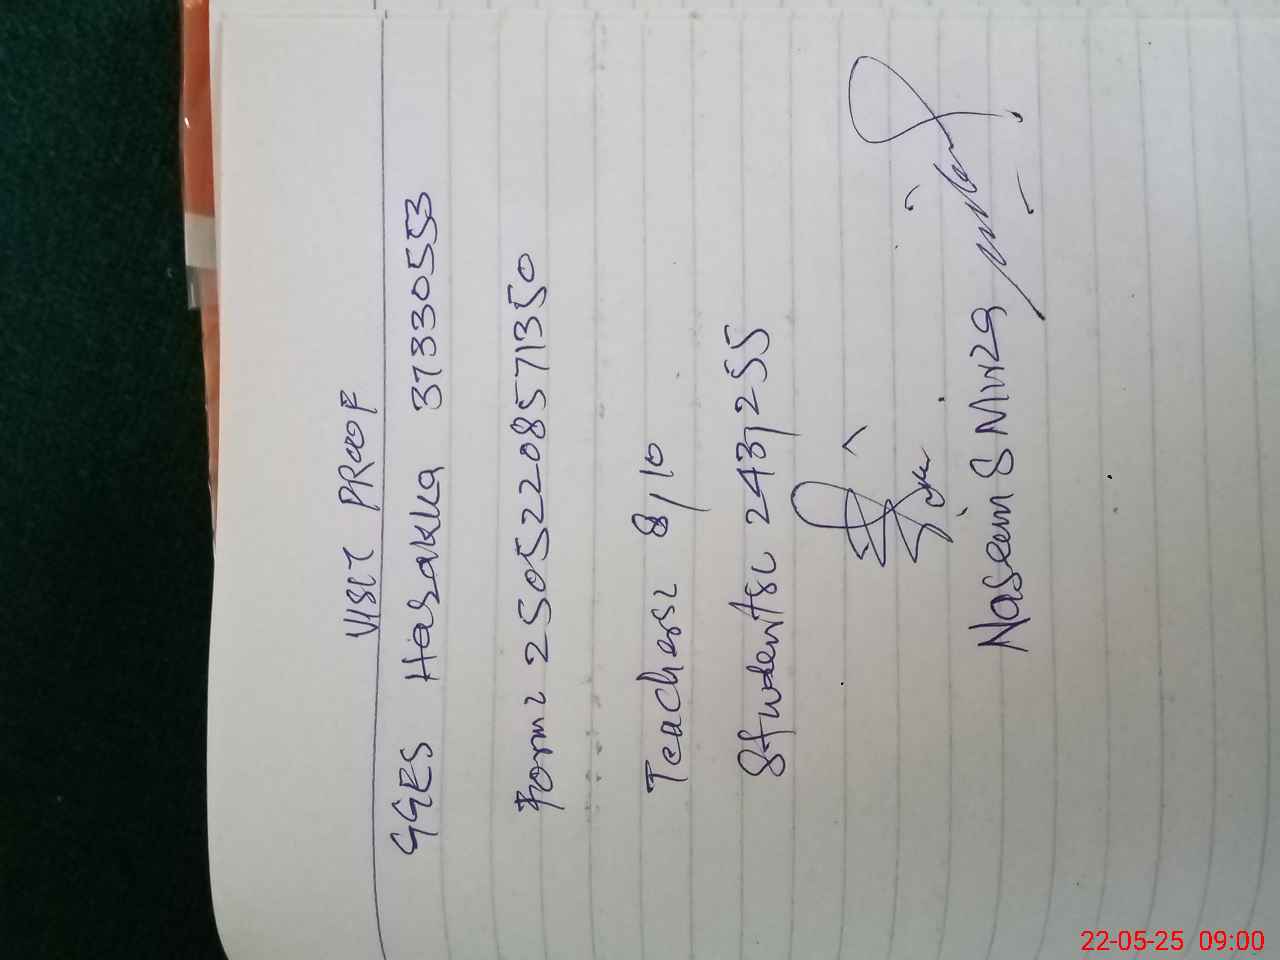 VISIT PROOF
GGES Hasakka 37330553
Form: 25052208571350
Teachers: 8/10
Students: 243/255
Naseem S Mirza
22-05-25 09:00